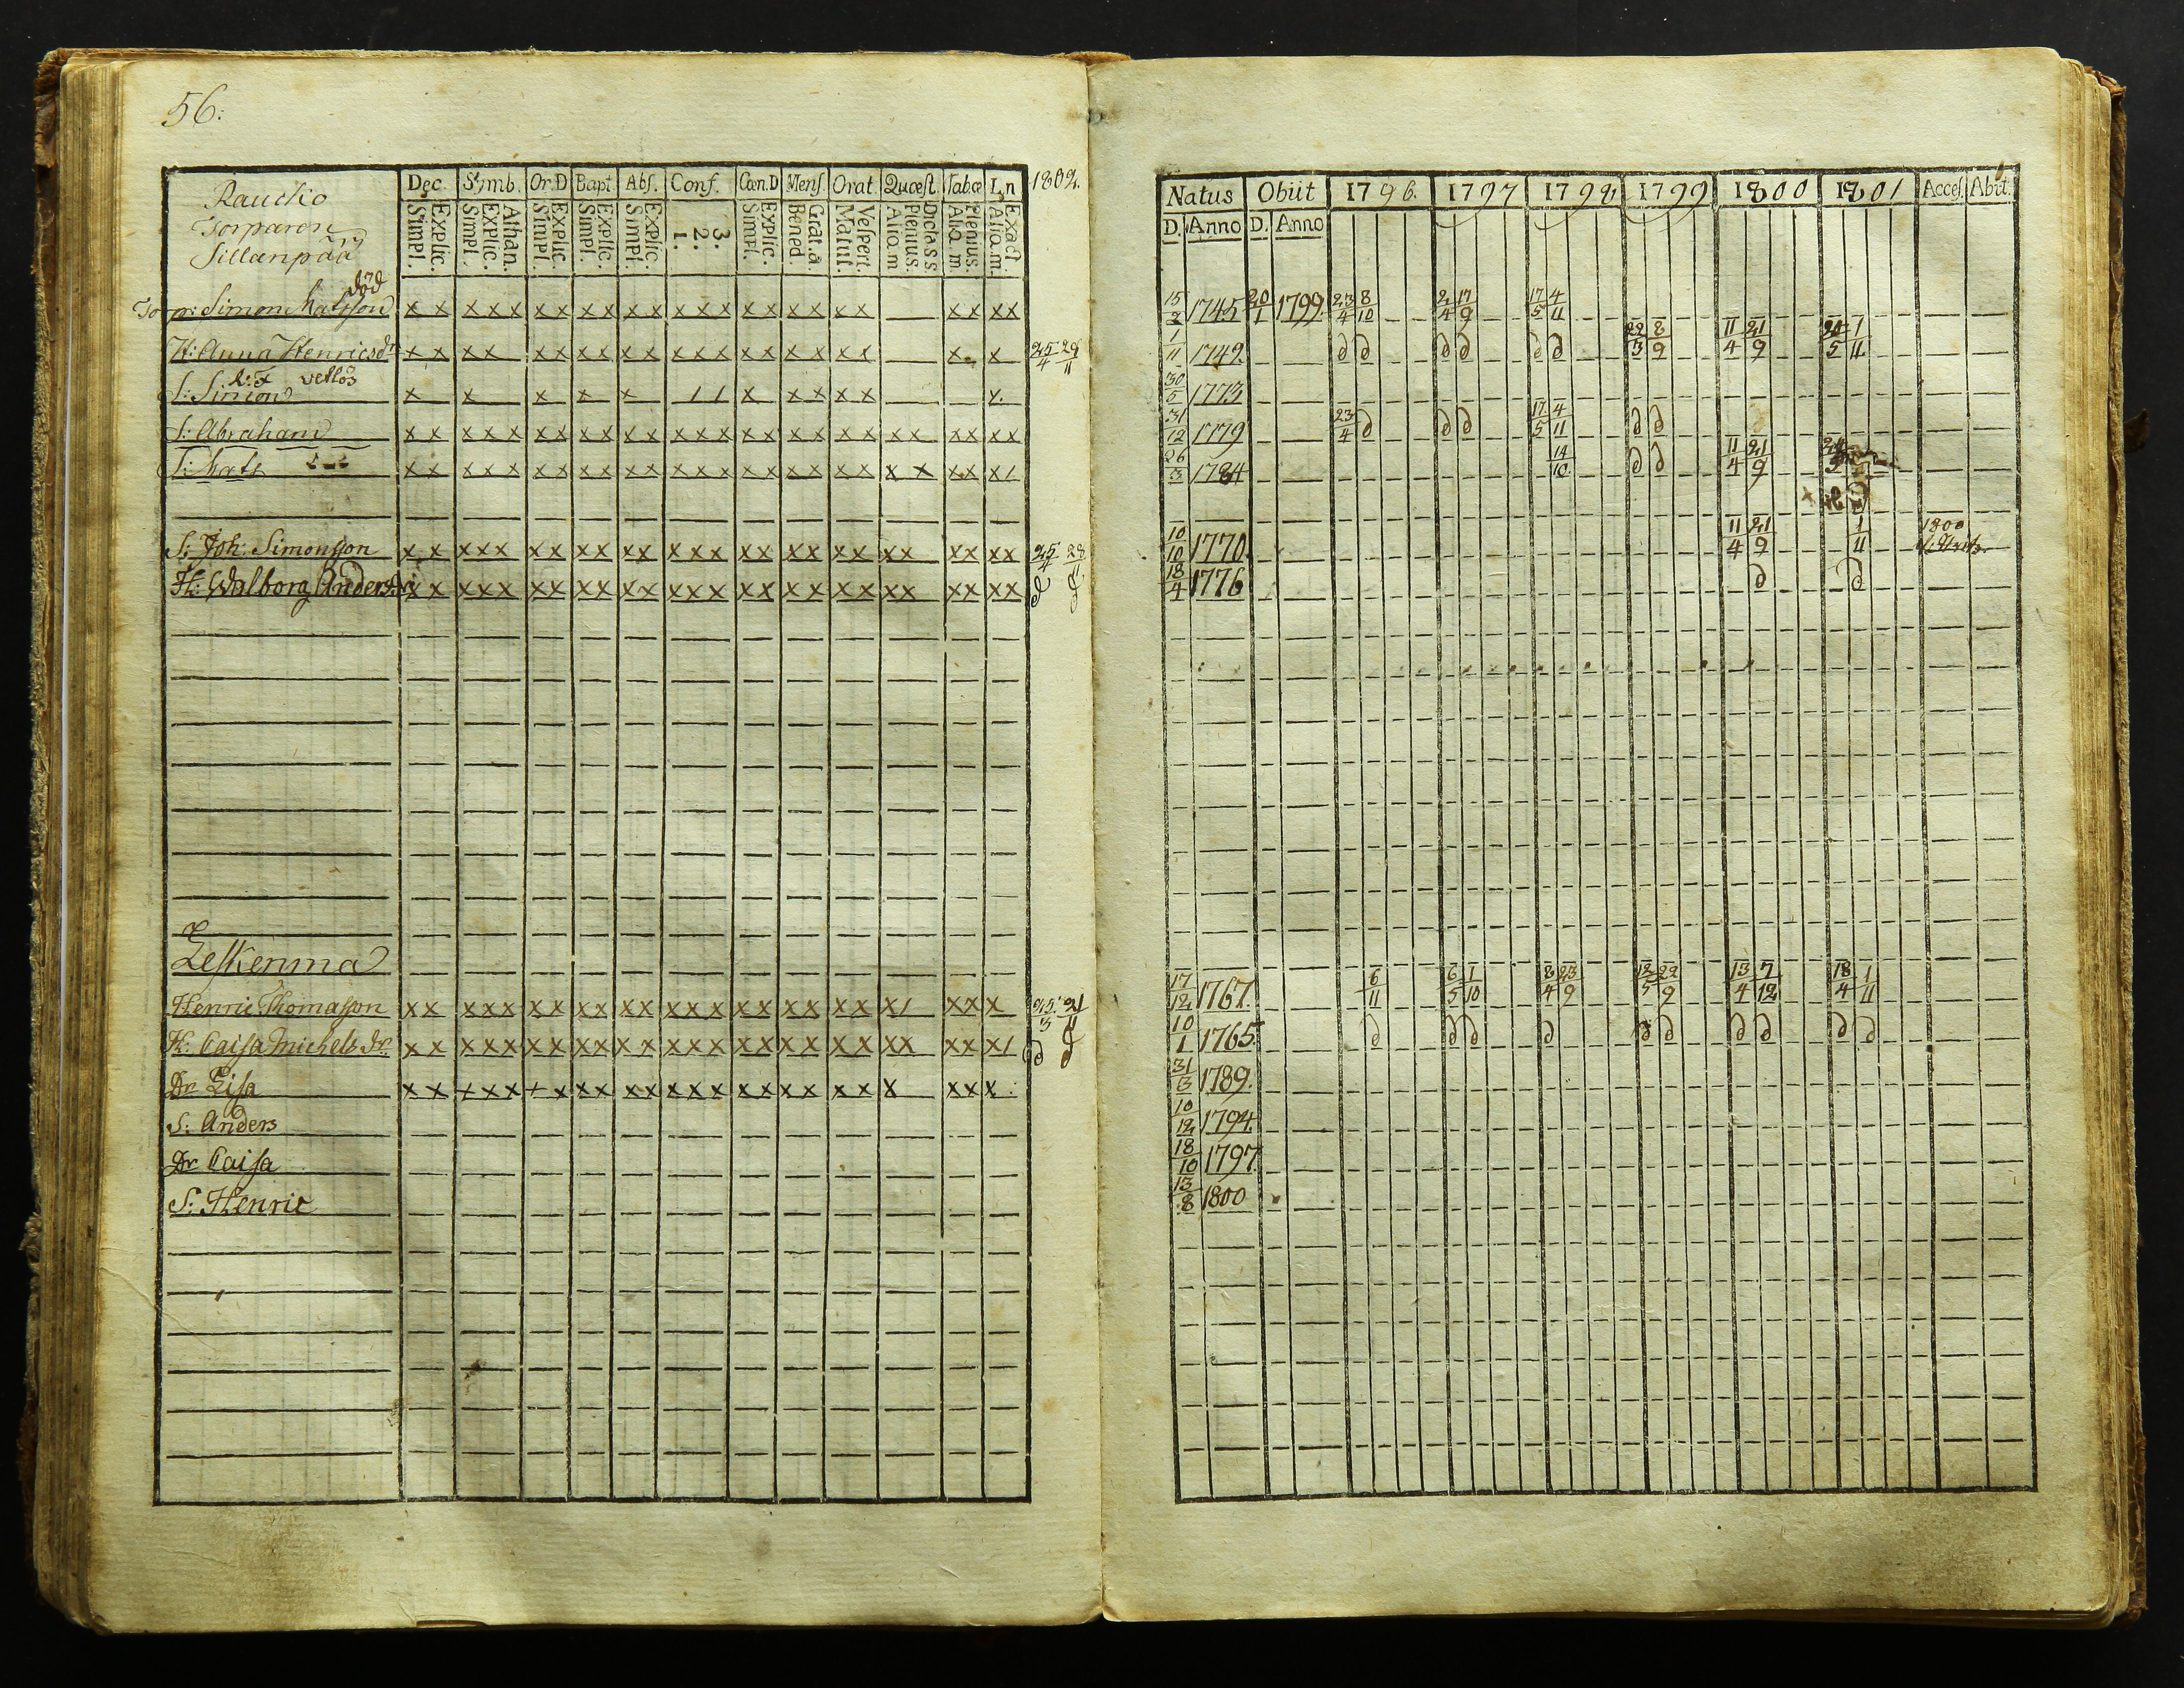 56:
Dec. Symb. Or.D Bapt. Abs. Conf. Cœn.D Mens. Orat. Quæst. Tabæ L,n 1802.
Simpl. Explic. Simpl. Explic. Athan. Simpl. Explic. Simpl. Explic. Simpl. Explic. 1. 2. 3. Simpl. Explic. Bened. Grat.a. Matut. Vespert. Aliq.m Plenius. Dicta S S. Aliq.m Plenius. Aliq.m. Exact.
Rauckio
Torparen
Sillanpää
död
Torp: Simon Matsson x x x x x x x x x x x x x x x x x x x x x x x
H: Anna Henricsdr x x x x x x x x x x x x x x x x x x x x 25/4 28/11
vettlös
S: Simon x x x x x 1 1 x x x x x x.
S: Abraham x x x x x x x x x x x x x x x x x x x x x x x x x
S: Mats x x x x x x x x x x x x x x x x x x x x x x x x x /
S: Joh: Simonsson x x x x x x x x x x x x x x x x x x x x x x x x x x 25/4 28/11
H: Walborg Andersdr x x x x x x x x x x x x x x x x x x x x x x x x x x d d
Leskenma
Henric Thomasson x x x x x x x x x x x x x x x x x x x x x / x x x 25/3 21/11
H: Caisa Michelsdr x x x x x x x x x x x x x x x x x x x x x x x x x / d d
Dr Lisa x x x x x x x x x x x x x x x x x x x x x x x x
S: Anders
Dr Caisa
S: Henric
Natus Obiit 1796. 1797 1798 1799 1800 1801 Acces. Abit.
D. Anno D. Anno
15/2 1745 20/1 1799 23/4 8/10 2/4 17/9 17/5 4/11
1/11 1749. d d d d d d 22/3 8/9 11/4 21/9 20/5 1/11
30/5 1773
31/12 1779 23/4 d d d 17/5 4/11 d d
26/3 1784 14/10 d d 11/4 21/9
10/10 1770. 11/4 21/9 1/11 1800
18/4 1776 d d
17/12 1767. 6/11 6/5 1/10 8/4 23/9 18/5 22/9 13/4 7/12 18/4 1/11
10/1 1765 d d d d d d d d d d
31/3 1789.
10/12 1794.
18/10 1797
13/8 1800